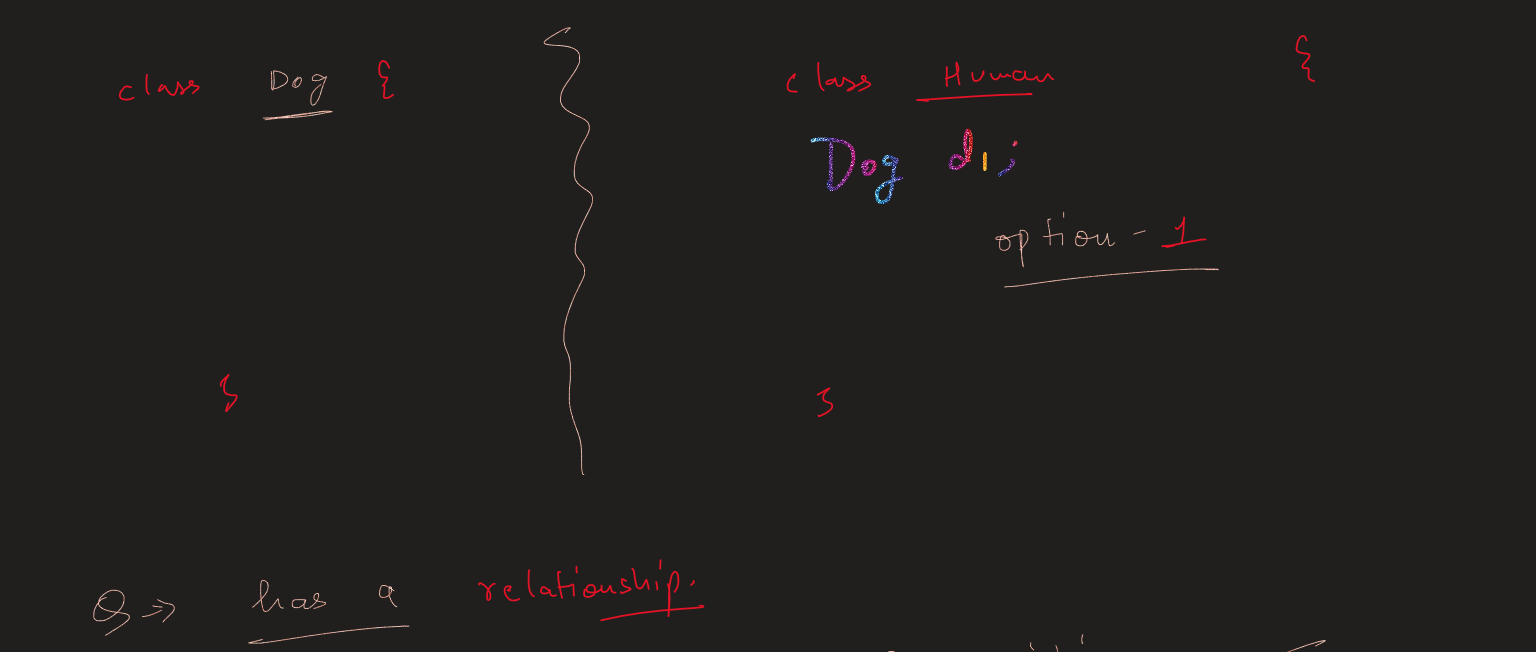 class Dog {
}
class Human {
Dog d1;
option - 1
}
Q => has a relationship.